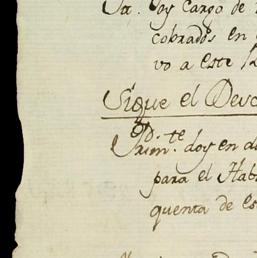 doy cargo de
cobrados en
vo a este
Sigue el Desc
Prim.te doy en d
para el Hab
quenta de es